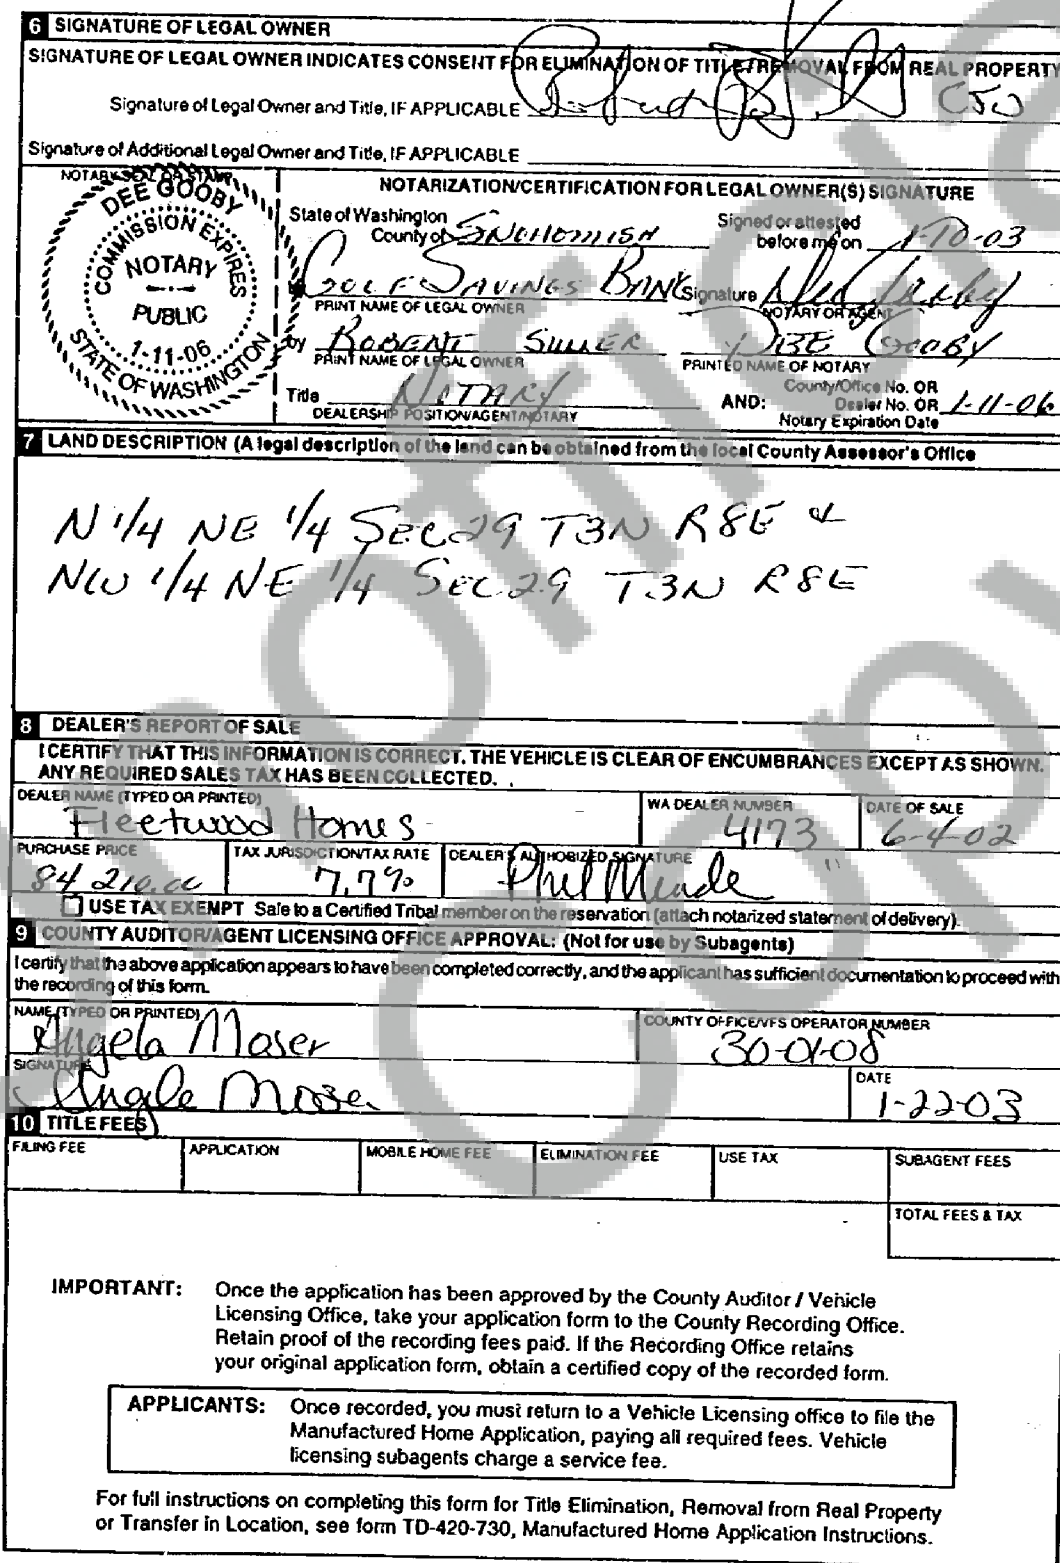 6 SIGNATURE OF LEGAL OWNER
SIGNATURE OF LEGAL OWNER INDICATES CONSENT FOR ELIMINATION OF TITLE/REMOVAL FROM REAL PROPERTY
Signature of Legal Owner and Title, IF APPLICABLE
Signature of Additional Legal Owner and Title, IF APPLICABLE
NOTARY SEAL OR STAMP
DEE GOOBY
COMMISSION EXPIRES
NOTARY
PUBLIC
1-11-06
STATE OF WASHINGTON
NOTARIZATION/CERTIFICATION FOR LEGAL OWNER(S) SIGNATURE
State of Washington
County of SNOHOMISH
Signed or attested
before me on 1-10-03
GOLF SAVINGS BANK
Signature Dee Gooby
PRINT NAME OF LEGAL OWNER
NOTARY OR AGENT
by ROBERT
DEE GOOBY
PRINT NAME OF LEGAL OWNER
PRINTED NAME OF NOTARY
Title NOTARY
DEALERSHIP POSITION/AGENT/NOTARY
AND:
County/Office No. OR
Dealer No. OR 1-11-06
Notary Expiration Date
7 LAND DESCRIPTION (A legal description of the land can be obtained from the local County Assessor's Office
N 1/4 NE 1/4 SEC 29 T3N R8E &
NW 1/4 NE 1/4 SEC 29 T3N R8E
8 DEALER'S REPORT OF SALE
I CERTIFY THAT THIS INFORMATION IS CORRECT. THE VEHICLE IS CLEAR OF ENCUMBRANCES EXCEPT AS SHOWN.
ANY REQUIRED SALES TAX HAS BEEN COLLECTED.
DEALER NAME (TYPED OR PRINTED)
Fleetwood Homes
WA DEALER NUMBER
4173
DATE OF SALE
6-4-02
PURCHASE PRICE
84 210.00
TAX JURISDICTION/TAX RATE
7.7%
DEALER'S AUTHORIZED SIGNATURE
Phil Meade
USE TAX EXEMPT Sale to a Certified Tribal member on the reservation (attach notarized statement of delivery).
9 COUNTY AUDITOR/AGENT LICENSING OFFICE APPROVAL: (Not for use by Subagents)
I certify that the above application appears to have been completed correctly, and the applicant has sufficient documentation to proceed with
the recording of this form.
NAME (TYPED OR PRINTED)
Angela Moser
COUNTY OFFICE/VFS OPERATOR NUMBER
30-01-08
SIGNATURE
Angela Moser
DATE
1-22-03
10 TITLE FEES
FILING FEE
APPLICATION
MOBILE HOME FEE
ELIMINATION FEE
USE TAX
SUBAGENT FEES
TOTAL FEES & TAX
IMPORTANT: Once the application has been approved by the County Auditor / Vehicle
Licensing Office, take your application form to the County Recording Office.
Retain proof of the recording fees paid. If the Recording Office retains
your original application form, obtain a certified copy of the recorded form.
APPLICANTS: Once recorded, you must return to a Vehicle Licensing office to file the
Manufactured Home Application, paying all required fees. Vehicle
licensing subagents charge a service fee.
For full instructions on completing this form for Title Elimination, Removal from Real Property
or Transfer in Location, see form TD-420-730, Manufactured Home Application Instructions.